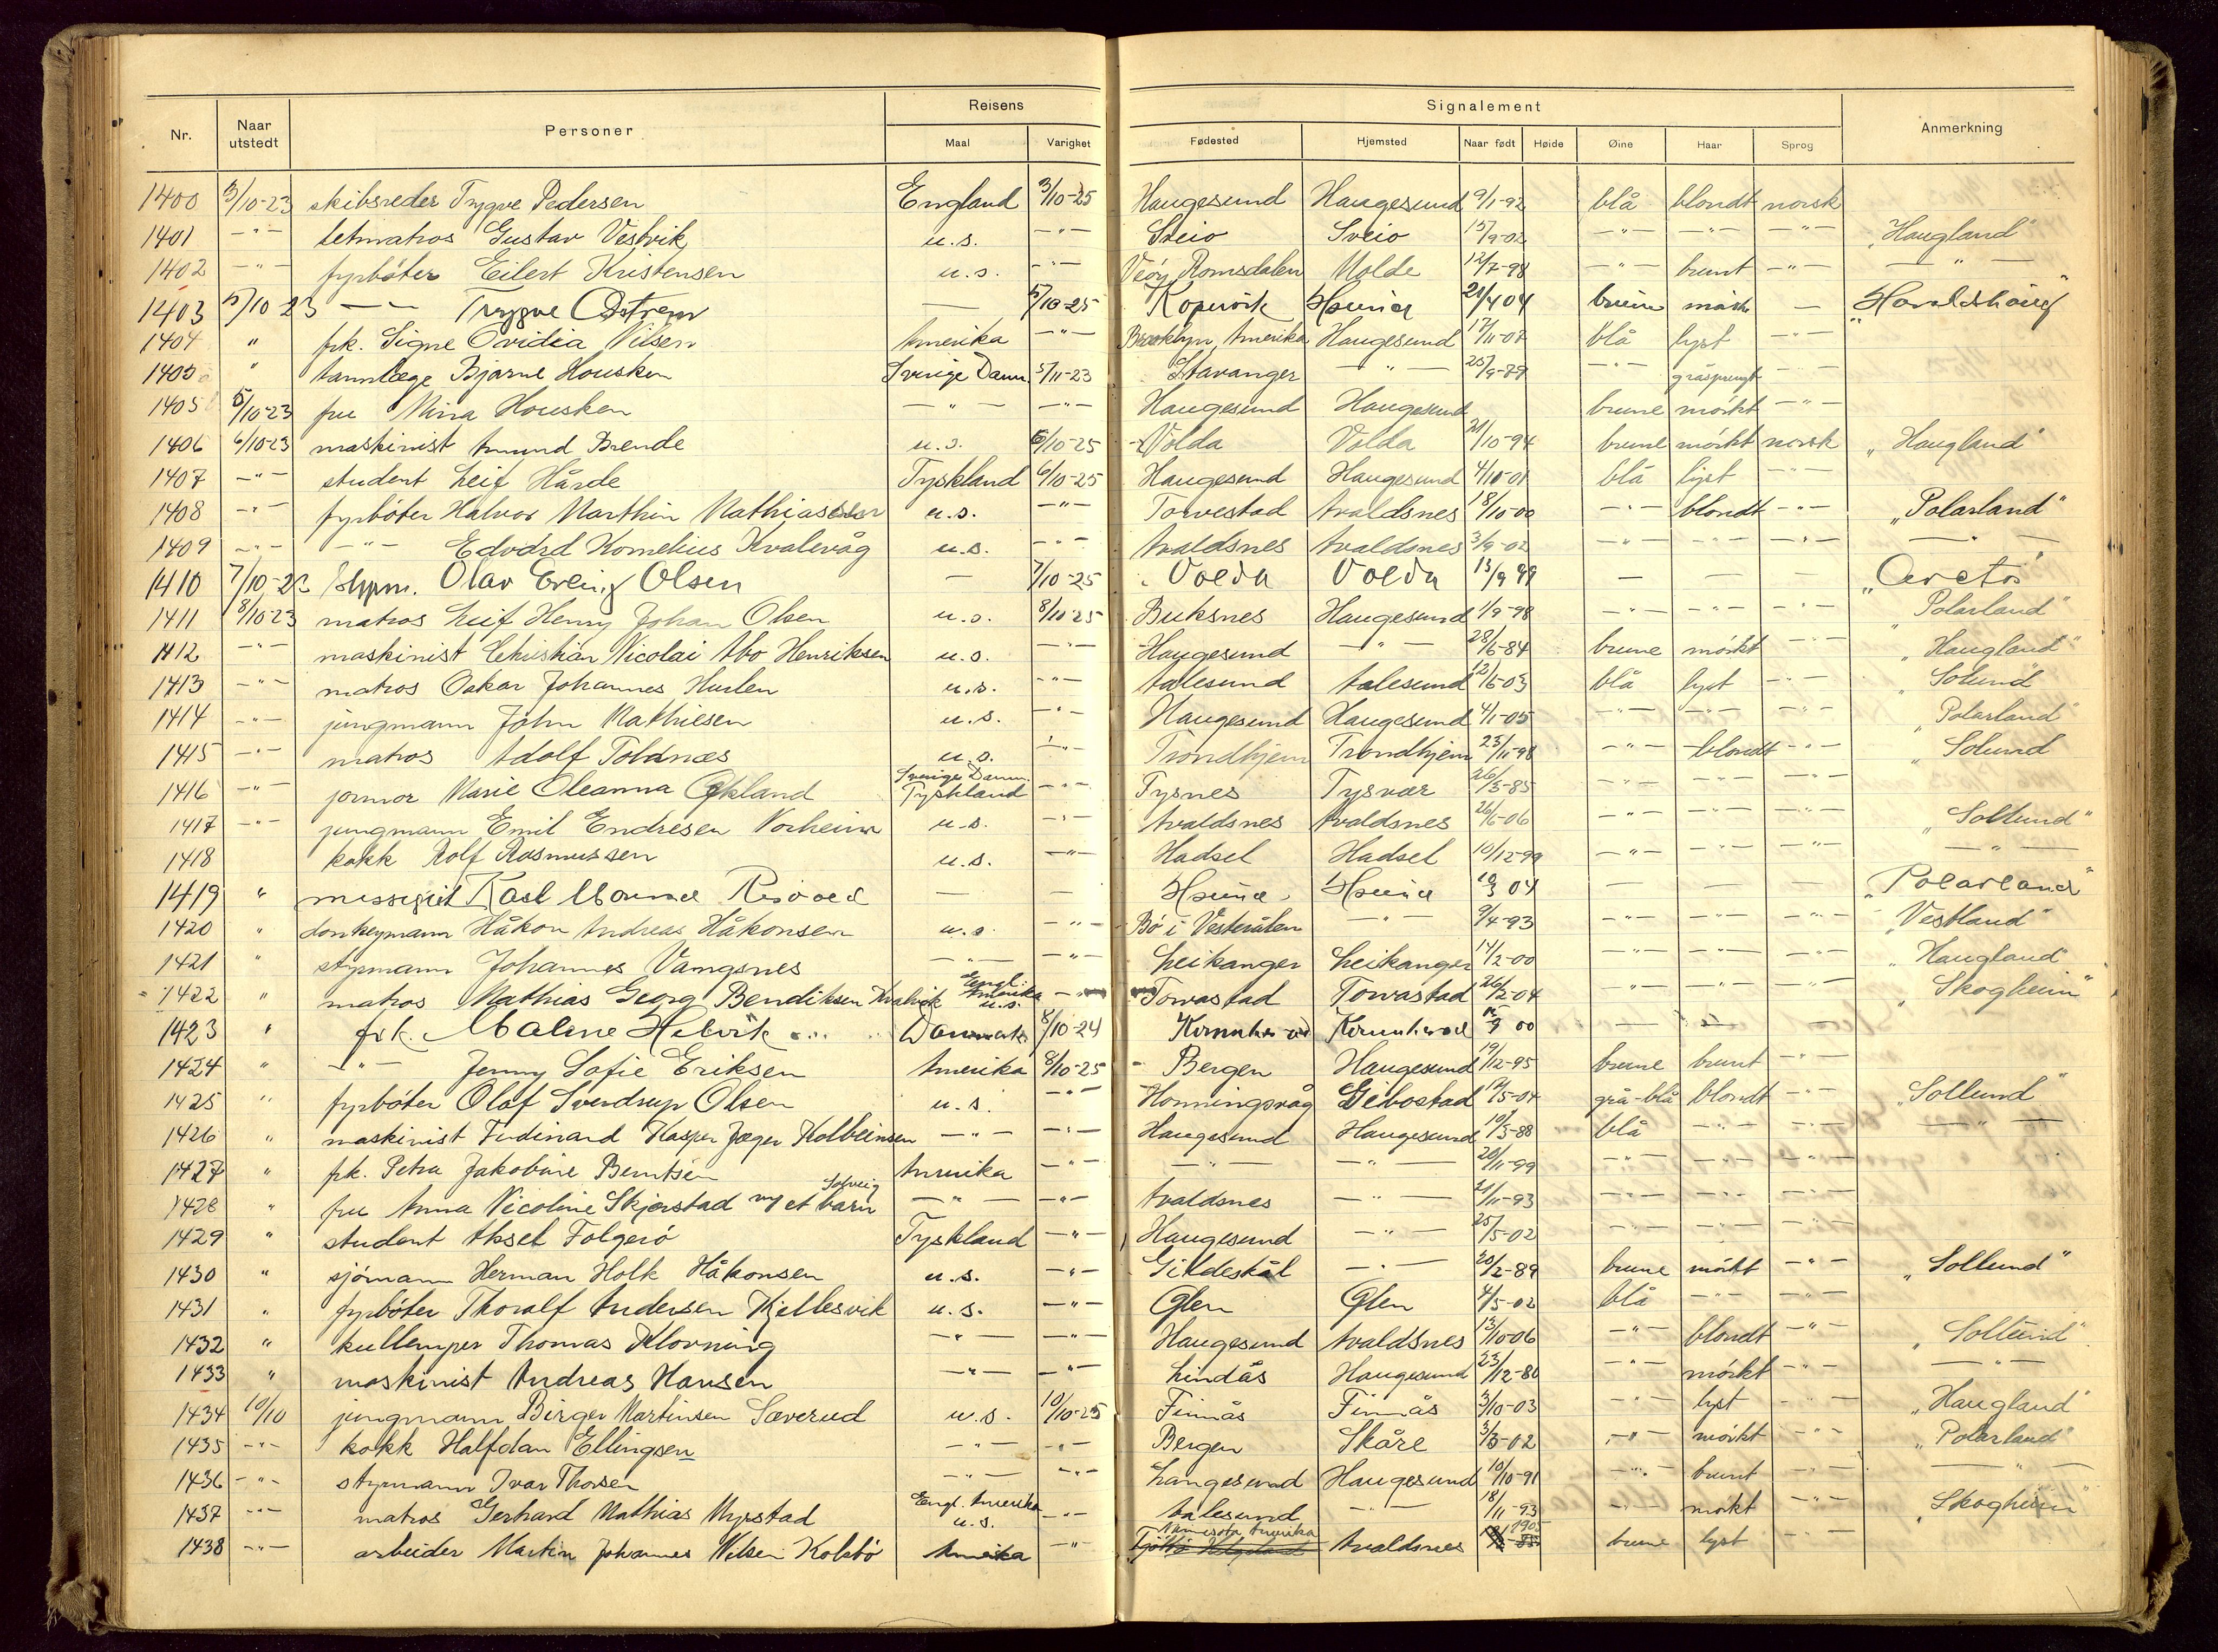 Reisens Signalement
Nr. Naar utstedt Personer Maal Varighet Fødested Hjemsted Naar født Høide Øine Haar Sprog Anmerkning
1400 3/10-23 skibsreder Trygve Pedersen England 3/10-25 Haugesund Haugesund 9/1-92 blå blondt norsk
1401 -"- letmatros Gustav Vestvik u.s. -"- Sveio Sveio 15/9-02 -"- -"- -"- "Haugland"
1402 -"- fyrbøter Eilert Kristensen u.s. -"- Veöy Romsdalen Molde 12/7-98 -"- brunt -"- -"-
1403 5/10 23 — Trygve Østrem — 5/10-25 Kopervik Hsund 21/4 04 brune mörk — "Haraldshaug"
1404 " frk. Signe Ovidia Nilsen Amerika -"- Brooklyn, Amerika Haugesund 17/11-07 blå lyst -"-
1405 " tannlæge Bjarne Housken Sverige Danm. 5/11-23 Stavanger -"- 25/9-79 -"- gråsprengt -"-
1405 5/10-23 fru Mina Housken -"- -"- Haugesund Haugesund brune mörkt -"-
1406 6/10-23 maskinist Amund Brende u.s. 6/10-25 Volda Volda 21/10-94 brune mörkt norsk "Haugland"
1407 -"- student Leif Hårde Tyskland 6/10-25 Haugesund Haugesund 4/10-01 blå lyst -"-
1408 -"- fyrbøter Halvor Marthin Mathiassen u.s. -"- Torvestad Avaldsnes 18/10-00 -"- blondt -"- "Polarland"
1409 -"- -"- Edvard Kornelius Kvalevåg u.s. -"- Avaldsnes Avaldsnes 3/9-02 -"- -"- -"- -"-
1410 7/10-23 styrm. Olav Erling Olsen — 7/10-25 Volda Volda 13/9 99 — — — "Arctos"
1411 8/10-23 matros Leif Henry Johan Olsen u.s. 8/10 25 Buksnes Haugesund 1/9-98 -"- -"- -"- "Polarland"
1412 -"- maskinist Christian Nicolai Abo Henriksen u.s. -"- Haugesund -"- 28/6-84 brune mörkt -"- "Haugland"
1413 -"- matros Oskar Johannes Hurlen u.s. -"- Aalesund Aalesund 12/6-03 blå lyst -"- "Solund"
1414 -"- jungmann John Mathiesen u.s. -"- Haugesund Haugesund 4/1-05 -"- -"- -"- "Polarland"
1415 -"- matros Adolf Toldnæs u.s. -"- Trondhjem Trondhjem 23/11-98 -"- blondt -"- "Solund
1416 -"- jormor Marie Oleanna Økland Sverige Danm. Tyskland -"- Tysnes Tysvær 26/3-85 -"- -"- -"-
1417 -"- jungmann Emil Endresen Norheim u.s. -"- Avaldsnes Avaldsnes 26/6-06 -"- -"- -"- "Sollund"
1418 kokk Rolf Rasmussen u.s. -"- Hadsel Hadsel 10/12-99 -"- -"- -"- -"-
1419 " messegut Karl — — Hsund Hsund 10/3 04 — — — "Polarland"
1420 " donkeymann Håkon Andreas Håkonsen u.s. -"- Bö i Vesterålen -"- 9/4-93 -"- -"- -"- "Vestland"
1421 " styrmann Johannes Vangsnes -"- -"- Leikanger Leikanger 14/2-00 -"- -"- -"- "Haugland"
1422 " matros Mathias Georg Bendiksen Kvalvik Engl. Amerika u.s. -"- Torvastad Torvastad 26/2-04 -"- -"- -"- "Skogheim"
1423 " frk. Malene Helvik Danmark 8/10-24 9 00 — — —
1424 " -"- Jenny Sofie Eriksen Amerika 8/10-25 Bergen Haugesund 19/12-95 brune brunt -"-
1425 " fyrbøter Olaf Sverdrup Olsen u.s. -"- Honningsvåg Gibostad 12/5-04 grå-blå blondt -"- "Sollund"
1426 " maskinist Ferdinand Kasper Jæger Kolbeinsen -"- -"- Haugesund Haugesund 10/3-88 blå -"- -"- -"-
1427 " frk. Petra Jakobine Berntsen Amerika -"- -"- -"- 20/11-99 -"- -"- -"-
1428 " fru Anna Nicoline Skjørstad m/ et barn Solveig -"- -"- Avaldsnes -"- 21/11-93 -"- -"- -"-
1429 " student Aksel Folgerö Tyskland -"- Haugesund -"- 25/5-02 -"- -"- -"-
1430 " sjömann Herman Holk Håkonsen u.s. -"- Gildeskål -"- 20/2-89 brune mörkt -"- "Sollund"
1431 " fyrbøter Thoralf Andersen Kjellesvik u.s. -"- Ølen Ølen 4/5-02 blå -"- -"-
1432 " kullemper Thomas Klovning -"- -"- Haugesund Avaldsnes 13/10-06 -"- blondt -"- "Sollund"
1433 " maskinist Andreas Hansen -"- -"- Lindås Haugesund 23/12-80 -"- mörkt -"- -"-
1434 10/10 jungmann Birger Martinsen Sæverud u.s. 10/10-25 Finnås Finnås 3/10-03 -"- lyst -"- "Haugland"
1435 -"- kokk Halfdan Ellingsen -"- -"- Bergen Skåre 3/3-02 -"- mörkt -"- "Polarland"
1436 -"- styrmann Ivar Thorsen -"- -"- Langesund Haugesund 10/10-91 -"- brunt -"- -"-
1437 -"- matros Gerhard Mathias Myrstad Engl. Amerika u.s. -"- Aalesund -"- 18/11-93 -"- mørkt -"- "Skogheim"
1438 -"- arbeider Martin Johannes Nilsen Kolstö Amerika -"- Minnesota Amerika Avaldsnes 1905 brune lyst -"-